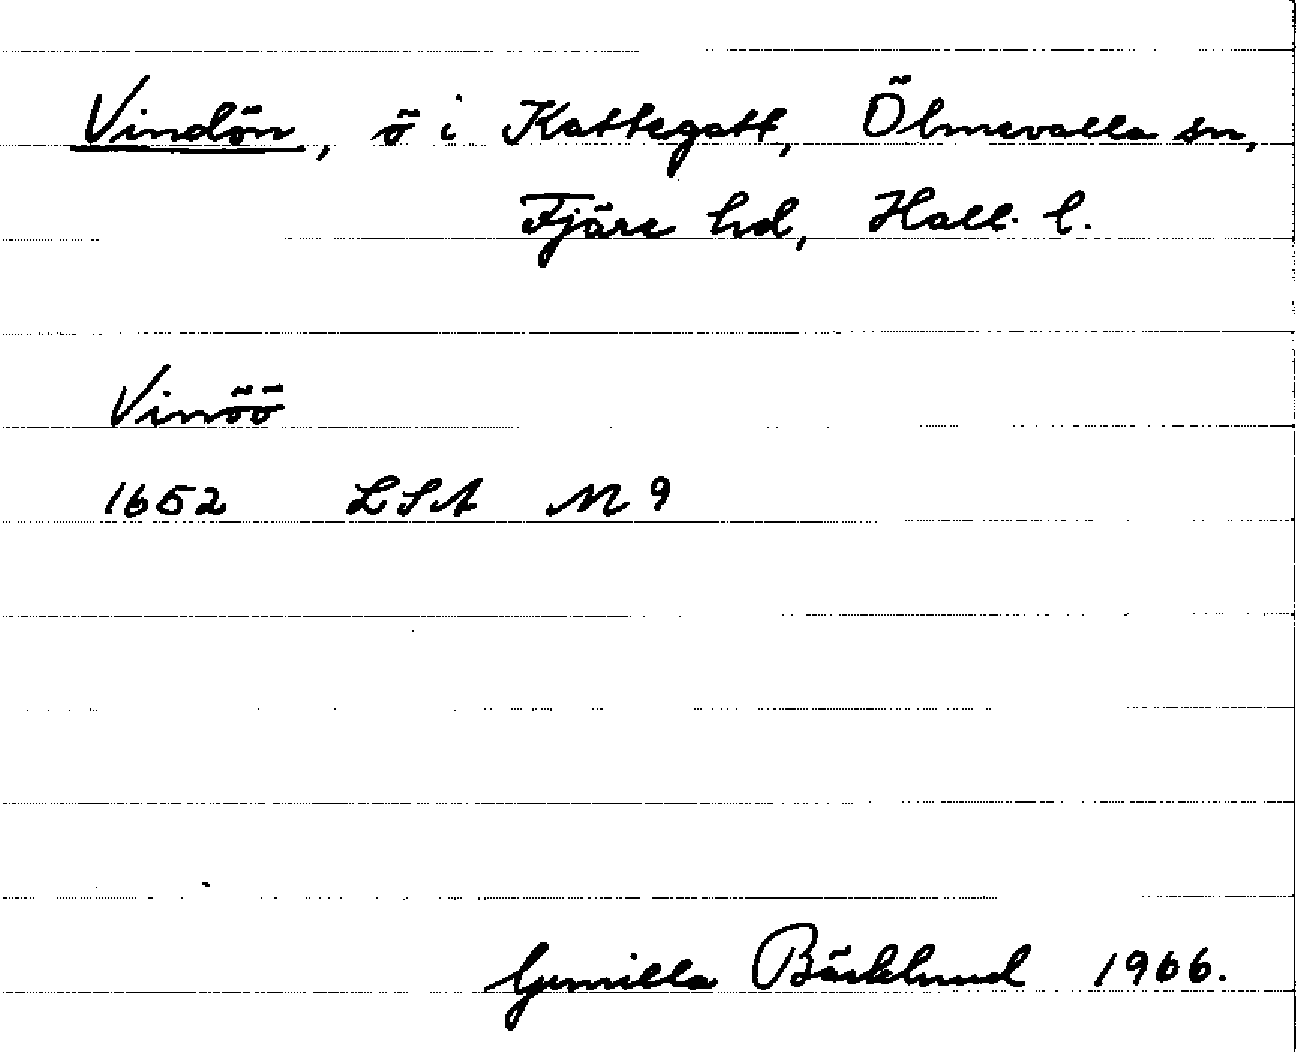 Vindön, ö i Kattegatt, Ölmevalla sn,
Fjäre hd, Hall. l.
Vinöö
1652 LSA M 9
Gunilla Bäcklund 1966.